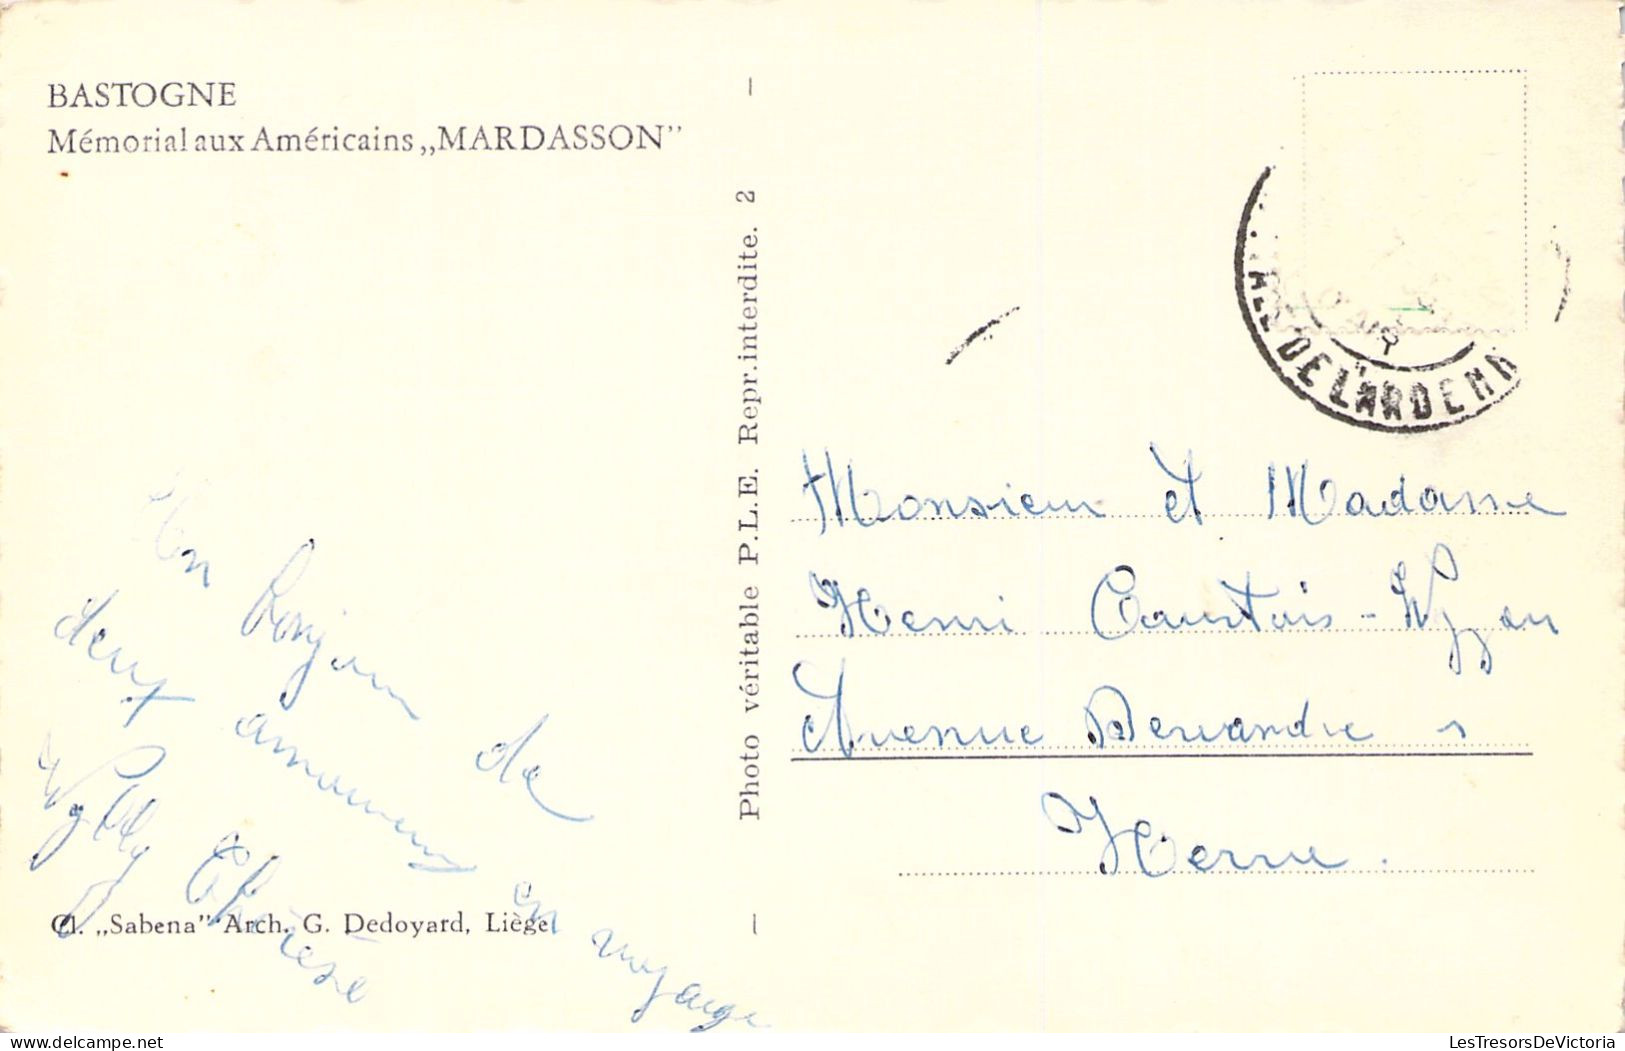 BASTOGNE
Mémorial aux Américains „MARDASSON”
Mon bonjour de
deux amoureux en voyage
Willy Thérèse
Cl. „Sabena” Arch. G. Dedoyard, Liège
Photo véritable P.L.E. Repr. interdite. 2
DE L'ARDENN
Monsieur et Madame
Henri
Avenue
Herve.
LesTresorsDeVictoria